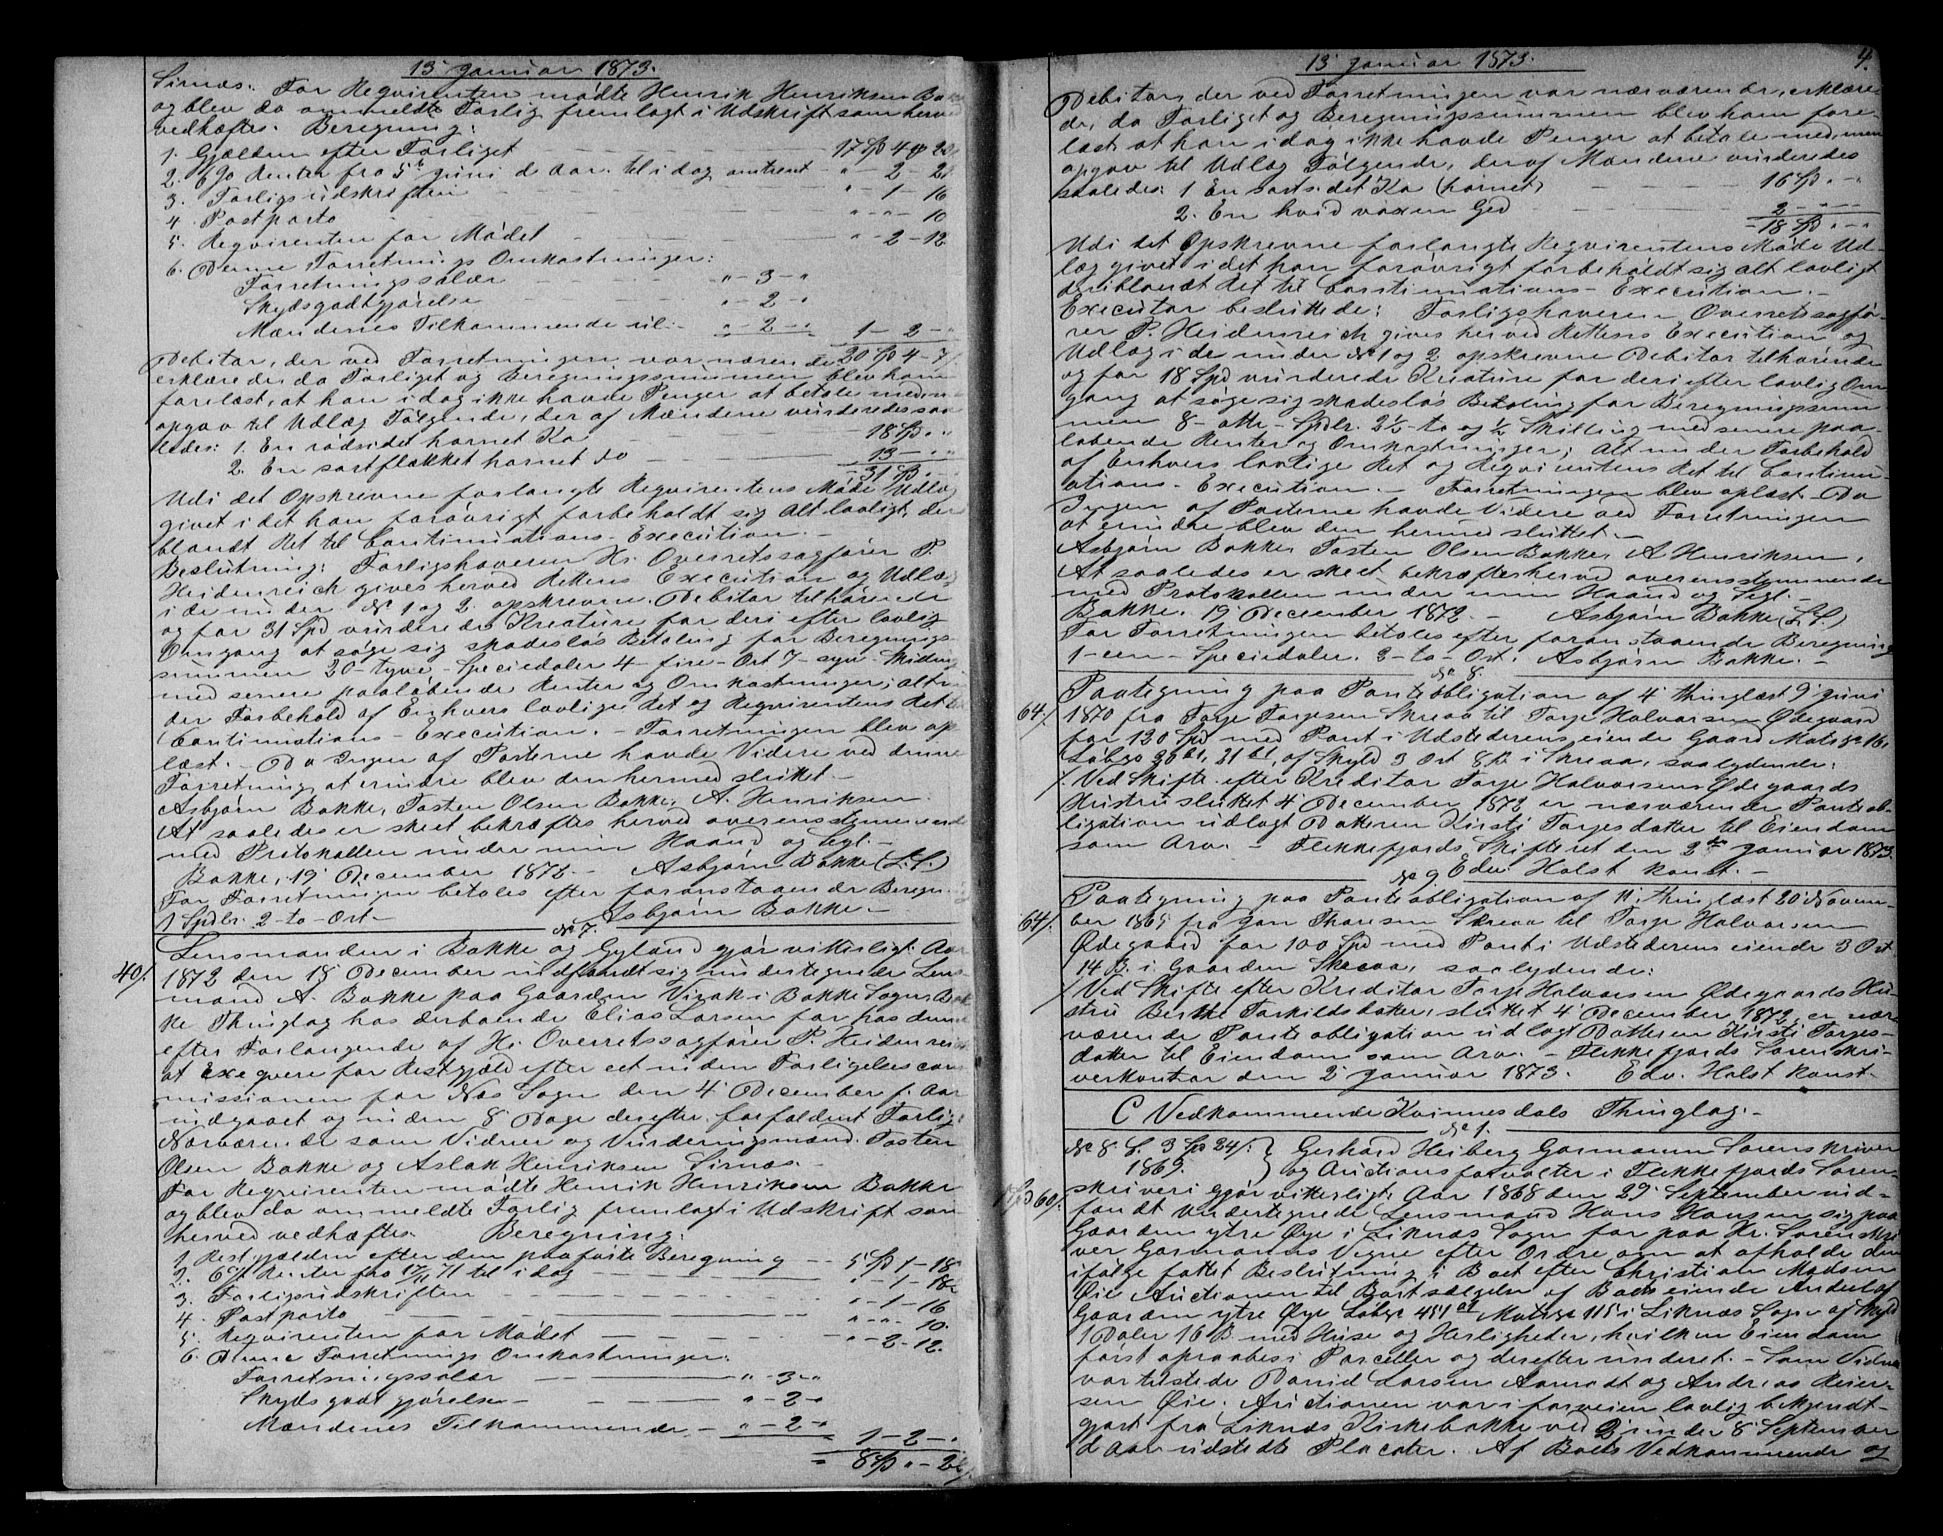 13 Januar 1873.
Sirnæs. For Reqvirenten mødte Henrik Henriksen
og blev da ommeldte Forlig fremlagt i Udskrift som
vedhæftes. Beregning:
1. Gjælden efter Forliget 17 Spd 4
2. 6 % Renter fra 5te Juni d. Aar. til i dag omtrent " - 2 -
3. Forligsudskriften " - 1 - 16
4. Postporto " - " - 10
5. Reqvirenten for Mødet " - 2 - 12
6. Denne Forretnings Omkostninger:
Forretningssalær " - 3 - "
Skydsgodtgjørelse " - 2 - "
Mændenes Tilkommende " - 2 - " 1 - 2 - "
20 Spd 4 - 7
Debitor, der ved Forretningen var
erklærede da Forliget og Beregningssummen blev ham
forelæst, at han i dag ikke havde Penger at betale med,
opgav til Udlæg Følgende, der af Mændene vurderedes saa
ledes: 1. En rødsidet hornet Ko 18 Spd " "
2. En sortflækket hornet do 13 - " "
31 Sp. "
Udi det Opskrevne forlangte Reqvirentens Møde Udlæg
givet i det han forøvrigt forbeholdt sig Alt lovligt, der
blandt Ret til Continuations-Execution. -
Beslutning: Forligshaveren Hr. Overretssagfører P.
Heidenreich gives herved Rettens Execution og Udlæg
i de under No 1 og 2 opskrevne Debitor tilhørende
og for 31 Spd vurderede Kreature for deri efter lovlig
Omgang at søge sig skadesløs Betaling for Beregnings-
summen 20-tyve-Speciedaler 4-fire-Ort 7-syv-Skilling
med senere paaløbende Renter og Omkostninger; alt un
der Forbehold af Enhvers lovlige Ret og Reqvirentens Ret
Continuations-Execution. - Forretningen blev op
læst. - Da Ingen af Parterne havde Videre ved denne
Forretning at erindre blev den hermed sluttet. -
Asbjørn Bakke, Tosten Olsen Bakke, A. Henriksen.
At saaledes er skeet bekræftes herved overensstemmende
med Protokollen under min Haand og Segl. -
Bakke, 19 December 1872. - Asbjørn Bakke (L.S.)
For Forretningen betales efter foranstaaende Beregn.
1 Spdlr. 2-to-Ort - Asbjørn Bakke. -
No 7.
40/. Lensmanden i Bakke og Gyland gjør vitterligt: Aar
1872 den 18 December indfandt sig undertegnede Lens-
mand A. Bakke paa Gaarden Virak i Bakke Sogn, Bak
ke Thinglag hos derboende Elias Larsen for hos denne
efter Forlangende af Hr. Overretssagfører P. Heidenreich
at exeqvere for Restgjæld efter et inden Forligelsescom
missionen for Næs Sogn den 4 December f. Aar
indgaaet og inden 8 Dage derefter forfaldent Forlig.
Nærværende som Vidner og Vurderingsmænd: Tosten
Olsen Bakke og Aslak Henriksen Sirnæs. -
For Reqvirenten mødte Henrik Henriksen Bakke
og blev da ommeldte Forlig fremlagt i Udskrift som
herved vedhæftes. Beregning:
1. Restgjælden efter den paaførte Beregning 5 Spd 1 - 18
2. 6 % Renter fra 17/11 71 til i dag " - 1 - 18
3. Forligsudskriften " - 1 - 16
4. Postporto " - " - 10.
5. Reqvirenten for Mødet " - 2 - 12.
6. Denne Forretnings Omkostninger:
Forretningssalær " - 3 - "
Skydsgodtgjørelse " - 2 - "
Mændenes Tilkommende " - 2 - " 1 - 2 - "
8 Spd " -
13 Januar 1873. 4.
Debitor, der ved Forretningen var nærværende, erklære-
de, da Forliget og Beregningssummen blev ham fore-
læst at han i dag ikke havde Penger at betale med, men
opgav til Udlæg Følgende, der af Mændene vurderedes
saaledes: 1 En sortsidet Ko (hornet) 16 Spd " "
2. En hvid voxen Ged 2 - " "
18 Spd " "
Udi det Opskrevne forlangte Reqvirentens Møde Ud-
læg givet i det han forøvrigt forbeholdt sig alt lovligt
deriblandt Ret til Continuations-Execution. -
Executor besluttede: Forligshaveren Overretssagfø-
rer P. Heidenreich gives herved Rettens Execution og
Udlæg i de under No 1 og 2 opskrevne Debitor tilhørende
og for 18 Spd vurderede Kreature for deri efter lovlig Om-
gang at søge sig skadesløs Betaling for Beregningssum
men 8-otte-Spdlr. 2½-to og ½ Skilling med senere paa-
løbende Renter og Omkostninger; Alt under Forbehold
af Enhvers lovlige Ret og Reqvirentens Ret til Continu-
ations-Execution. - Forretningen blev oplæst. Da
Ingen af Parterne havde Videre ved Forretningen
at erindre blev den hermed sluttet. -
Asbjørn Bakke, Tosten Olsen Bakke, A Henriksen.
At saaledes er skeet bekræftes herved overensstemmende
med Protokollen under min Haand og Segl. -
Bakke, 19 December 1872. - Asbjørn Bakke (L.S.)
For Forretningen betales efter foranstaaende Beregning
1-een-Speciedaler. 2-to-Ort. Asbjørn Bakke. -
No 8.
64/. Paategning paa Panteobligation af 4 thinglæst 9 Juni
1870 fra Torje Torjesen Skreaa til Torje Halvorsen Ødegaard
for 120 Spd med Pant i Udstederens eiende Gaard Matr. No 16,
Løbeno 30 b1, 31 b1, af Skyld 3 Ort 8 β i Skreaa, saalydende:
/. Ved Skifte efter Kreditor Torje Halvorsen Ødegaards
Hustru sluttet 4 December 1872 er nærværende Panteob-
ligation udlagt Datteren Kirsti Torjesdatter til Eiendom
som Arv. - Flekkefjords Skifteret den 2den Januar 1873.
Edv. Holst konst. -
No 9
64/. Paategning paa Panteobligation af 11, thinglæst 20 Novem-
ber 1869 fra Jan Skreaa til Torje Halvorsen
Ødegaard for 100 Spd med Pant i Udstederens eiende 3 Ort
14 β. i Gaarden Skreaa, saalydende:
/ Ved Skifte efter Kreditor Torje Halvorsen Ødegaards Hu-
stru Berthe Torkildsdatter, sluttet 4 December 1872, er nær-
værende Panteobligation udlagt Datteren Kirsti Torjes-
datter til Eiendom som Arv. - Flekkefjords Sorenskri-
verkontor den 2 Januar 1873. Edv. Holst konst. -
C Vedkommende Kvinnesdals Thinglag. -
No 1.
No 8. S. 3 Sp 24/. 1869. } Gerhard Heiberg Garmann Sorenskriver
og Auctionsforvalter i Flekkefjords Soren-
1 Spd 60/. skriveri gjør vitterligt: Aar 1868 den 29 September ind-
fandt undertegnede Lensmand Hans Hansen sig paa
Gaarden ytre Øye i Liknæs Sogn for paa Hr. Sorenskri
ver Garmanns Vegne efter Ordre og at afholde den
ifølge fattet Beslutning i Boet efter Christian Madsen
Øie Auctionen til Bortsælgelse af Boets eiende Andeel af
Gaarden ytre Øye Løbeno 451 a1 Matr. No 115 i Liknæs Sogn af Skyld
1 Daler 16 β med Huse og Herligheder, hvilken Eiendom
først opraabes i Parceller og derefter underet. - Som Vidner
var tilstede David Larsen Aamodt og Andreas Reier-
sen Øie. Auctionen var i forveien lovlig bekjendt-
gjort fra Liknæs Kirkebakke ved under 8 September
d. Aar udstedt Placater. Af Boets Vedkommende og